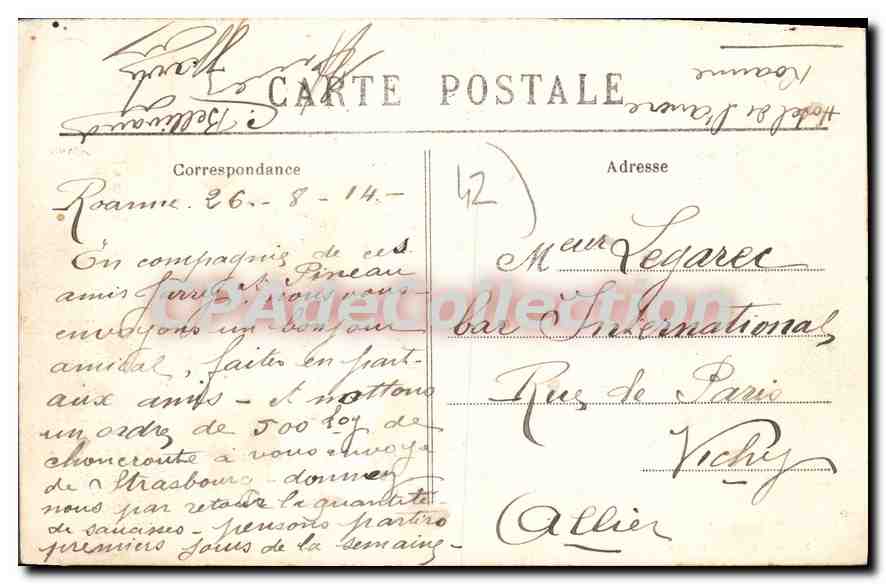 CARTE POSTALE
C. Bellinard
Hotel de
Roanne
Correspondance
Adresse
42
Roanne. 26 - 8 - 14 -
En compagnie de ces
amis Garrey et Pineau
nous vous
envoyons un bonjour
amical, faites en part
aux amis - et mettons
un ordre de 500 Kos de
choucroute à vous envoyé
de Strasbourg - donnez
nous par retour la quantité
de saucisses - pensons partir
premiers jours de la semaine -
Meur Legarec
bar International
Rue de Paris
Vichy
Allier
CPAdeCollection